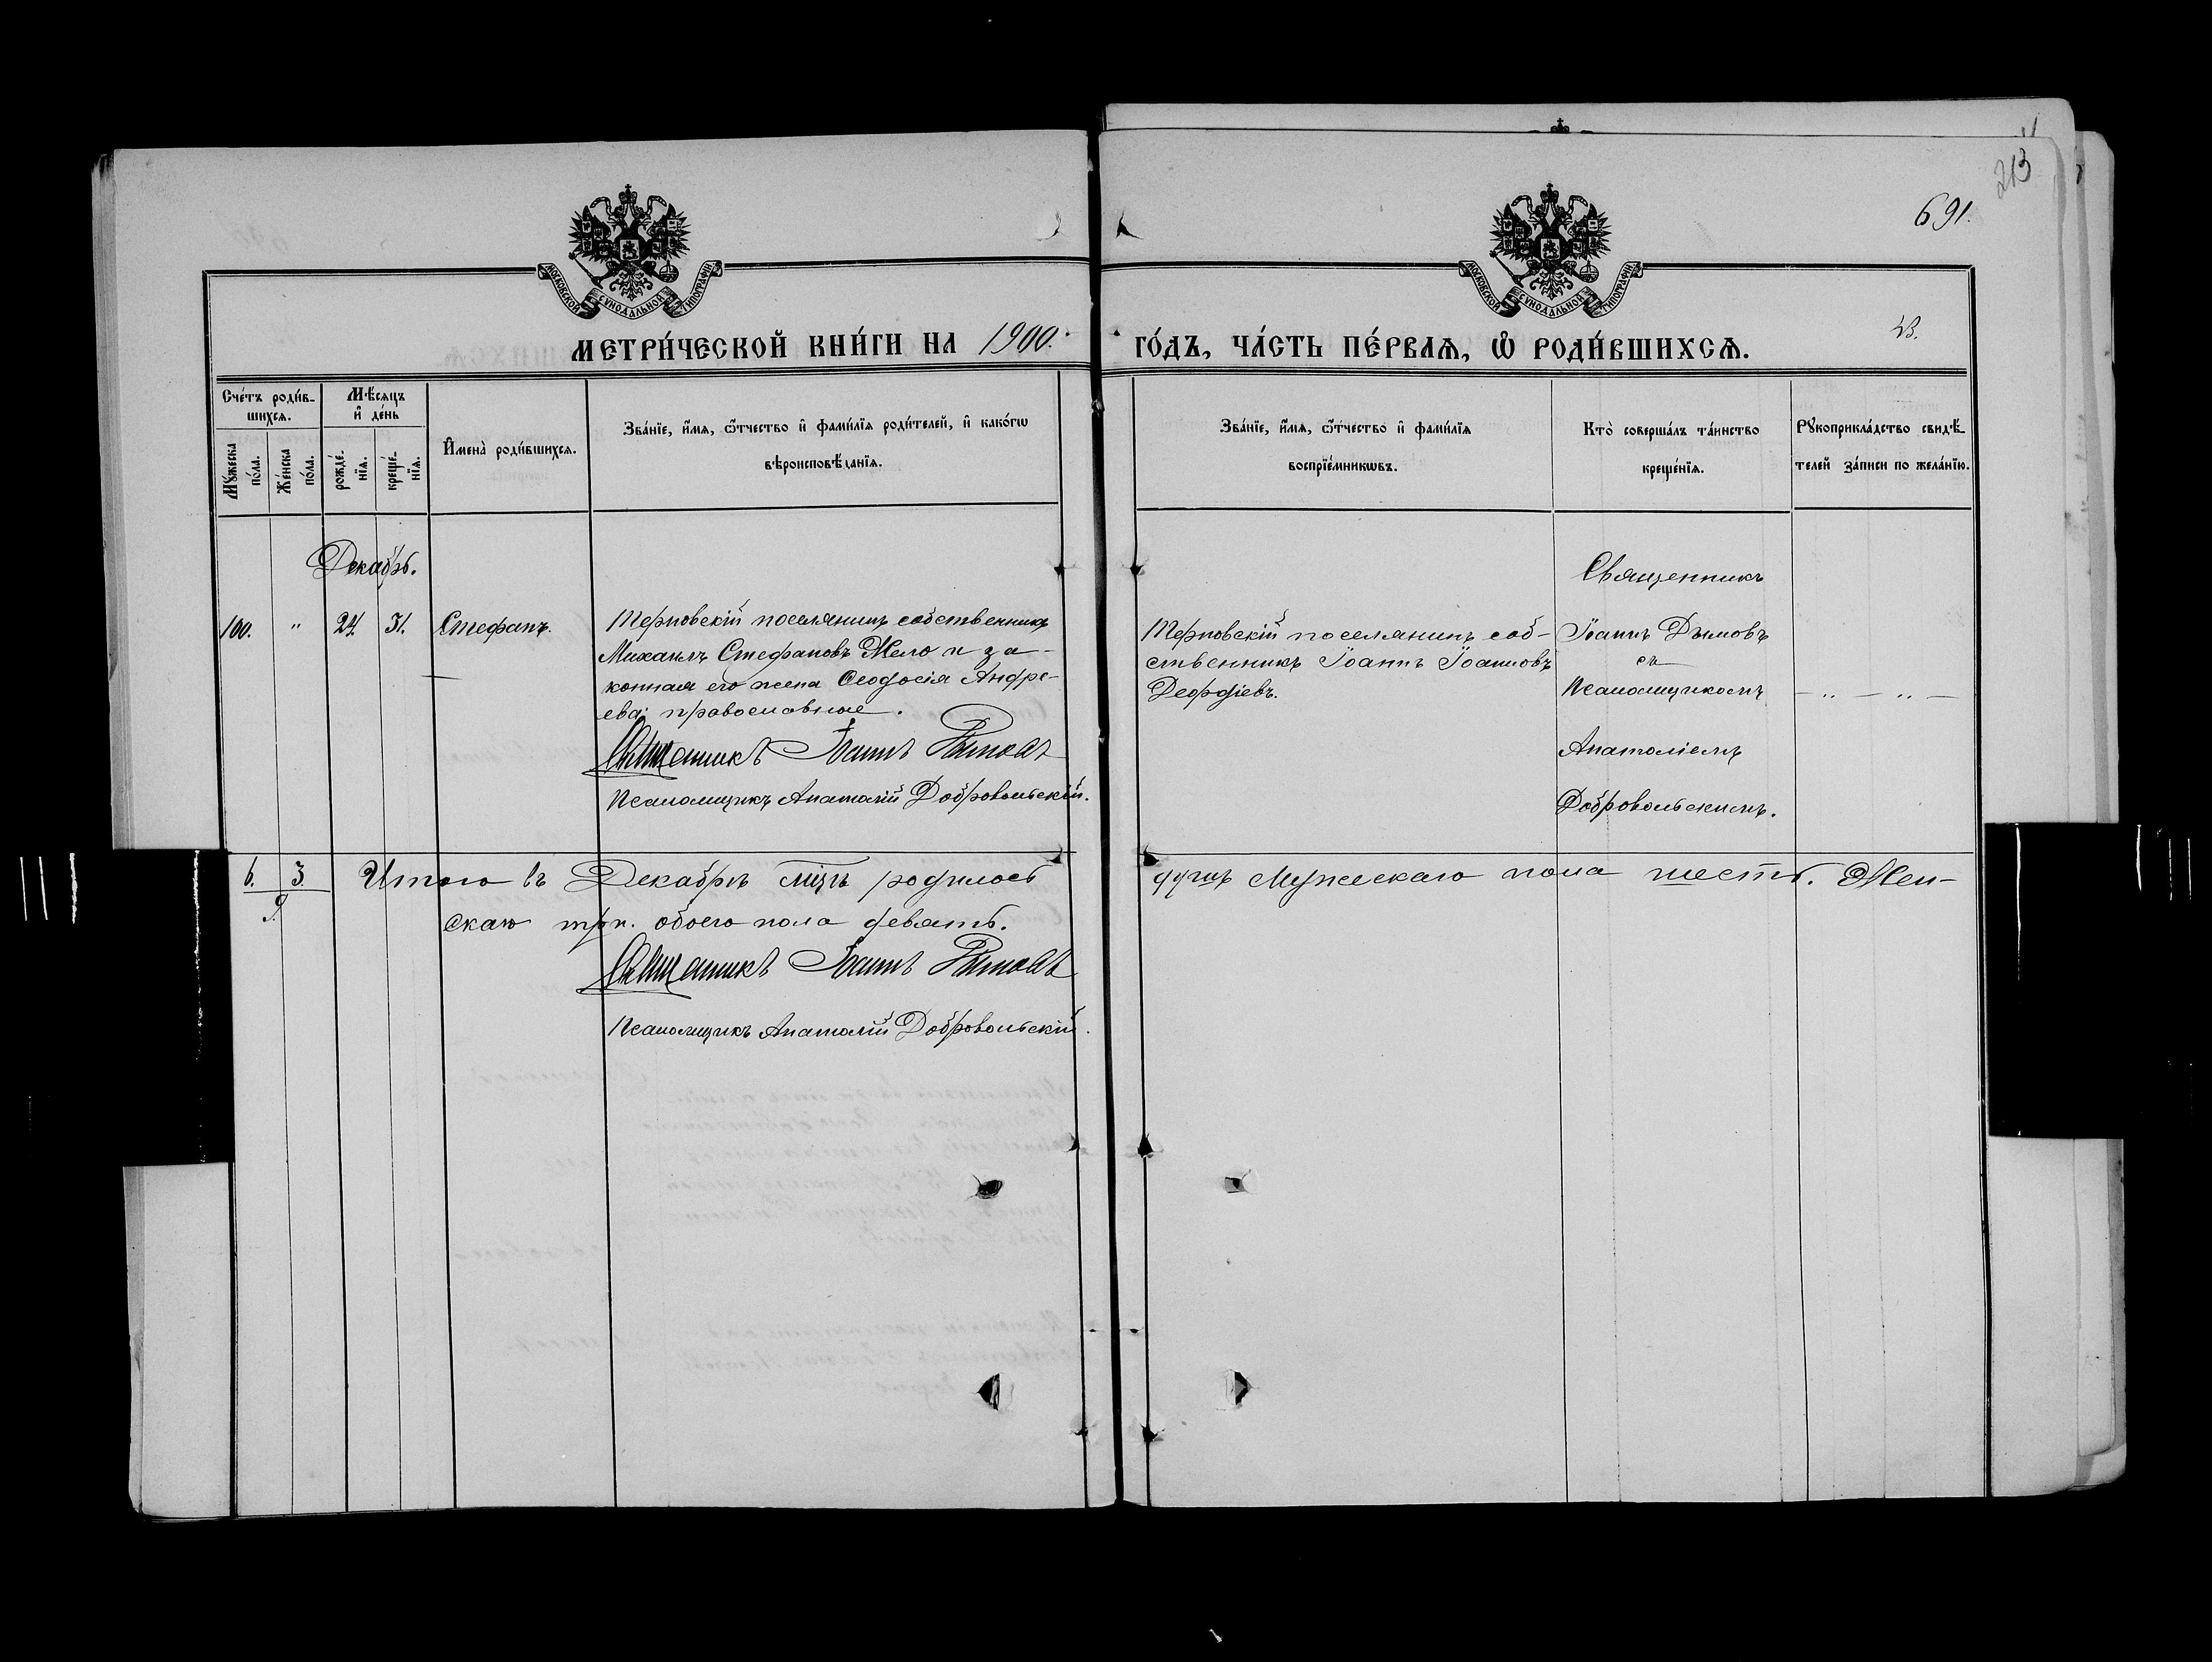 213
691.
МОСКОВСКОЙ СѴНОДАЛЬНОЙ ТИПОГРАФІИ
МОСКОВСКОЙ СѴНОДАЛЬНОЙ ТИПОГРАФІИ
МЕТРИ́ЧЕСКОЙ КНИ́ГИ НА 1900.
ГО́ДЪ, ЧА́СТЬ ПЕ́РВАѦ, Ѡ҆ РОДИ́ВШИХСѦ.
Сче́тъ роди́в-
шихсѧ.
Мꙋ́жеска
по́ла.
Же́нска
по́ла.
Мѣ́сѧцъ
и҆ де́нь
рожде́-
нїѧ.
креще́-
нїѧ.
И҆мена̀ роди́вшихсѧ.
Зва́нїе, и҆́мѧ, ѻ҆́тчество и҆ фами́лїѧ роди́телей, и҆ како́гѡ
вѣроисповѣ́данїѧ.
Зва́нїе, и҆́мѧ, ѻ҆́тчество и҆ фами́лїѧ
воспрїе́мникѡвъ.
Кто̀ соверша́лъ та́инство
креще́нїѧ.
Рꙋкоприкла́дство свидѣ́-
телей за́писи по жела́нїю.
Декабрь.
100. " 24. 31. Стефанъ.
Терновскій поселянинъ собственникъ
Михаилъ Стефановъ Жело и за-
конная его жена Ѳеодосія Андре-
ева; православные.
Священникъ Іоаннъ Дымовъ
Псаломщикъ Анатолій Добровольскій.
Терновскій поселянинъ соб-
ственникъ Іоаннъ Іоанновъ
Деордіевъ.
Священникъ
Іоаннъ Дымовъ
съ
Псаломщикомъ
Анатоліемъ
Добровольскимъ.
— " — " —
6. 3.
9.
Итого въ Декабрѣ мцѣ родилось
душъ Мужескаго пола шесть. Жен-
скаго три. обоего пола девять.
Священникъ Іоаннъ Дымовъ
Псаломщикъ Анатолій Добровольскій.